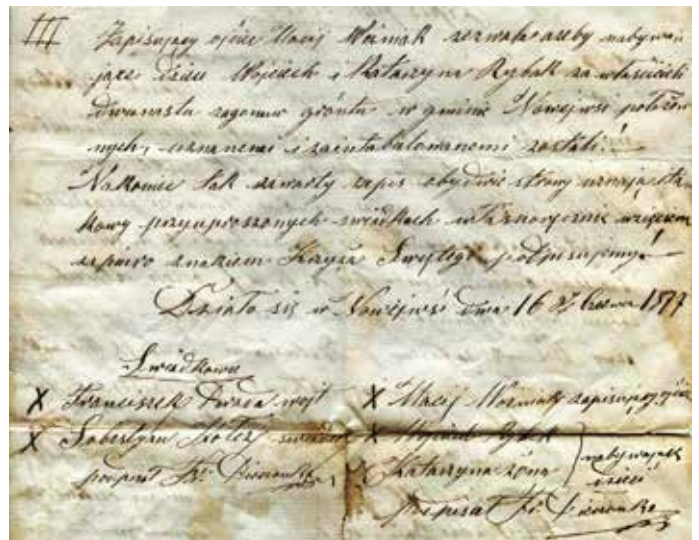 III Zapisujący ojciec Maciej Woźniak zezwala ażeby nabywa-
jące dzieci Wojciech i Katarzyna Rybak za właścicieli
dwunastu zagonów gróntu w gminie Nowejwsi położo-
nych, uznanemi i zaintabulowanemi zostali!
Nakoniec tak zawarty zapis obydwie strony uznają
przyuproszonych świadkach własnoręcznie
znakiem Krzyża Świętego podpisujemy!
Działo się w Nowejwsi dnia 16 Czerwca 1877
Świadkowie
X Franciszek Dwaca wojt
X Sobestyan Kołcz świadek
podpisał Fr.
X Maciej Woźniak zapisujący ojciec
X Wojciech Rybak
X Katarzyna żona
nabywające
dzieci
podpisał Fr.